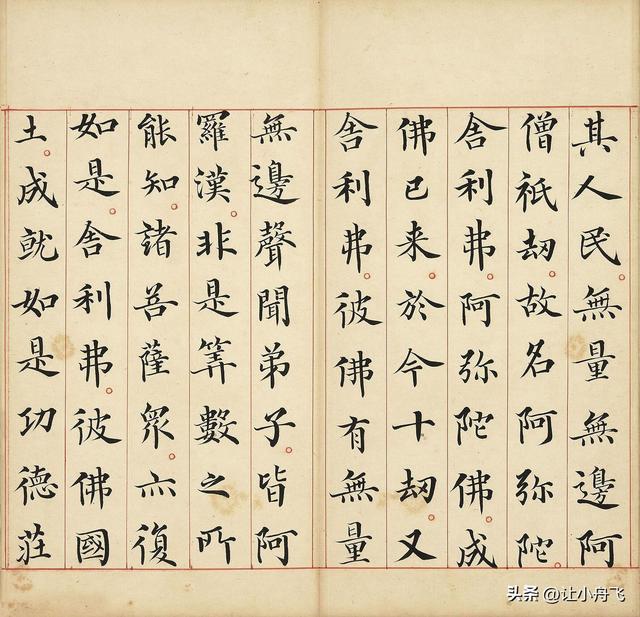 其人民無量無邊阿
僧祇劫故名阿弥陀
舎利弗阿弥陀佛成
佛已来於今十劫又
舎利弗彼佛有無量
無邊聲聞弟子皆阿
羅漢非是筭數之所
能知諸菩薩眾亦復
如是舎利弗彼佛國
土成就如是功德莊
头条 @让小舟飞